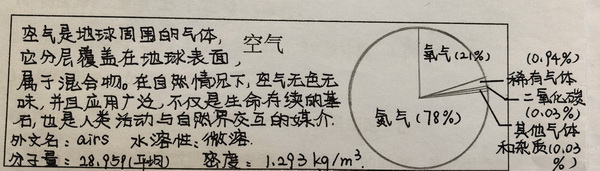 空气
空气是地球周围的气体,
它分层覆盖在地球表面,
属于混合物。在自然情况下,空气无色无
味,并且应用广泛,不仅是生命存续的基
石,也是人类活动与自然界交互的媒介.
外文名:airs 水溶性:微溶.
分子量:28.959(平均) 密度:1.293kg/m³.
氧气(21%)
氮气(78%)
(0.94%)
稀有气体
二氧化碳
(0.03%)
其他气体
和杂质(0.03
%)